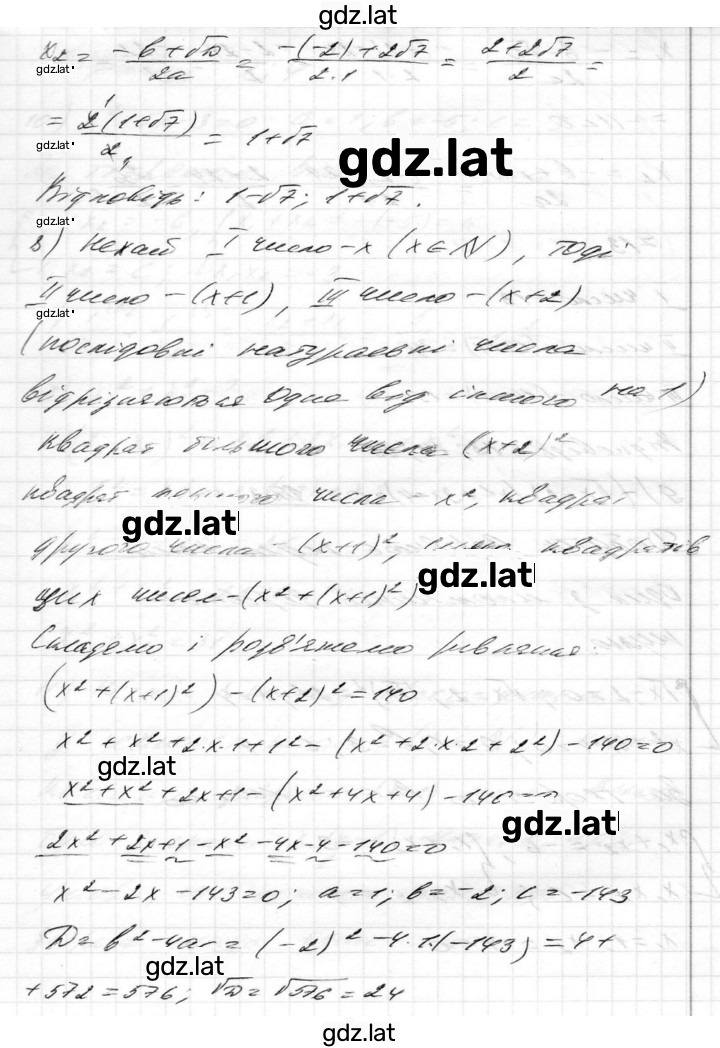 gdz.lat
x₂ = (-b+√D)/2a = (-(-2)+2√7)/(2·1) = (2+2√7)/2 =
gdz.lat
= 2¹(1+√7)/2₁ = 1+√7
gdz.lat
gdz.lat
Відповідь: 1-√7; 1+√7.
gdz.lat
в) Нехай I число - x (x ∈ N), тоді
gdz.lat
II число - (x+1), III число - (x+2)
gdz.lat
(послідовні натуральні числа
відрізняються одне від іншого на 1)
квадрат більшого числа (x+2)²
квадрат меншого числа - x², квадрат
gdz.lat
другого числа - (x+1)², квадратів
gdz.lat
цих чисел - (x²+(x+1)²)
Складемо і розв'яжемо рівняння:
(x²+(x+1)²) - (x+2)² = 140
x² + x² + 2·x·1+1² - (x²+2·x·2+2²) - 140=0
gdz.lat
x²+x²+2x+1 - (x²+4x+4) - 140=0
gdz.lat
2x²+2x+1-x²-4x-4-140=0
x²-2x-143=0; a=1; b=-2; c=-143
D=b²-4ac = (-2)²-4·1·(-143) = 4+
gdz.lat
+572=576; √D=√576=24
gdz.lat